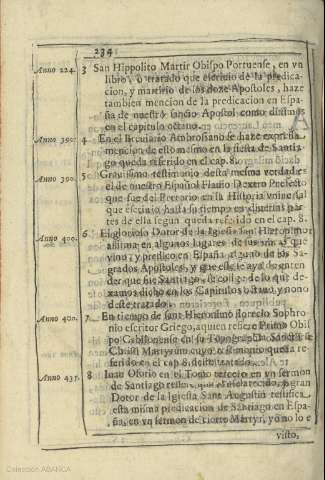 234
Anno 224. 3 San Hippolito Martir Obispo Portuense, en vn
libro, o tratado que escriuio de la predica-
cion, y martirio de los doze Apostoles, haze
tambien mencion de la predicacion en Espa-
ña de nuestro sancto Apostol como diximos
en el capitulo octauo.
Anno 390. 4 En el Breuiario Ambrosiano se haze expressa
mencion de esto mesmo en la fiesta de Santia-
go queda referido en el cap. 8.
Anno 390. 5 Grauissimo testimonio desta mesma verdad es
el de nuestro Español Flauio Dextro Prefecto
que fue del Pretorio en la Historia vniuersal
que escriuio hasta su tiempo en diuersas par-
tes de ella segun queda referido en el cap. 8.
Anno 400. 6 El glorioso Dotor de la Iglesia san Hieronimo
afirma en algunos lugares de sus obras que
vino, y predico en España alguno de los Sa-
grados Apostoles, y que este se aya de enten
der que fue Santiago se colige de lo que de-
xamos dicho en los Capitulos octauo y nono
deste tratado.
Anno 400. 7 En tiempo de sant Hieronimo florecio Sophro-
nio escritor Griego, a quien refiere Primo Obis
po Cabilonense en su Topographia Sanctorū
Christi Martyrum cuyo testimonio queda re-
ferido en el cap. 8. deste tratado.
Anno 435. 8 Iuan Osorio en el Tomo tercero en vn sermon
de Santiago refiere que el esclarecido, y gran
Dotor de la Iglesia Sant Augustin testifica
esta misma predicacion de Santiago en Espa-
ña, en vn sermon de cierto Martyr, yo no le e
visto,
Colección ABANCA